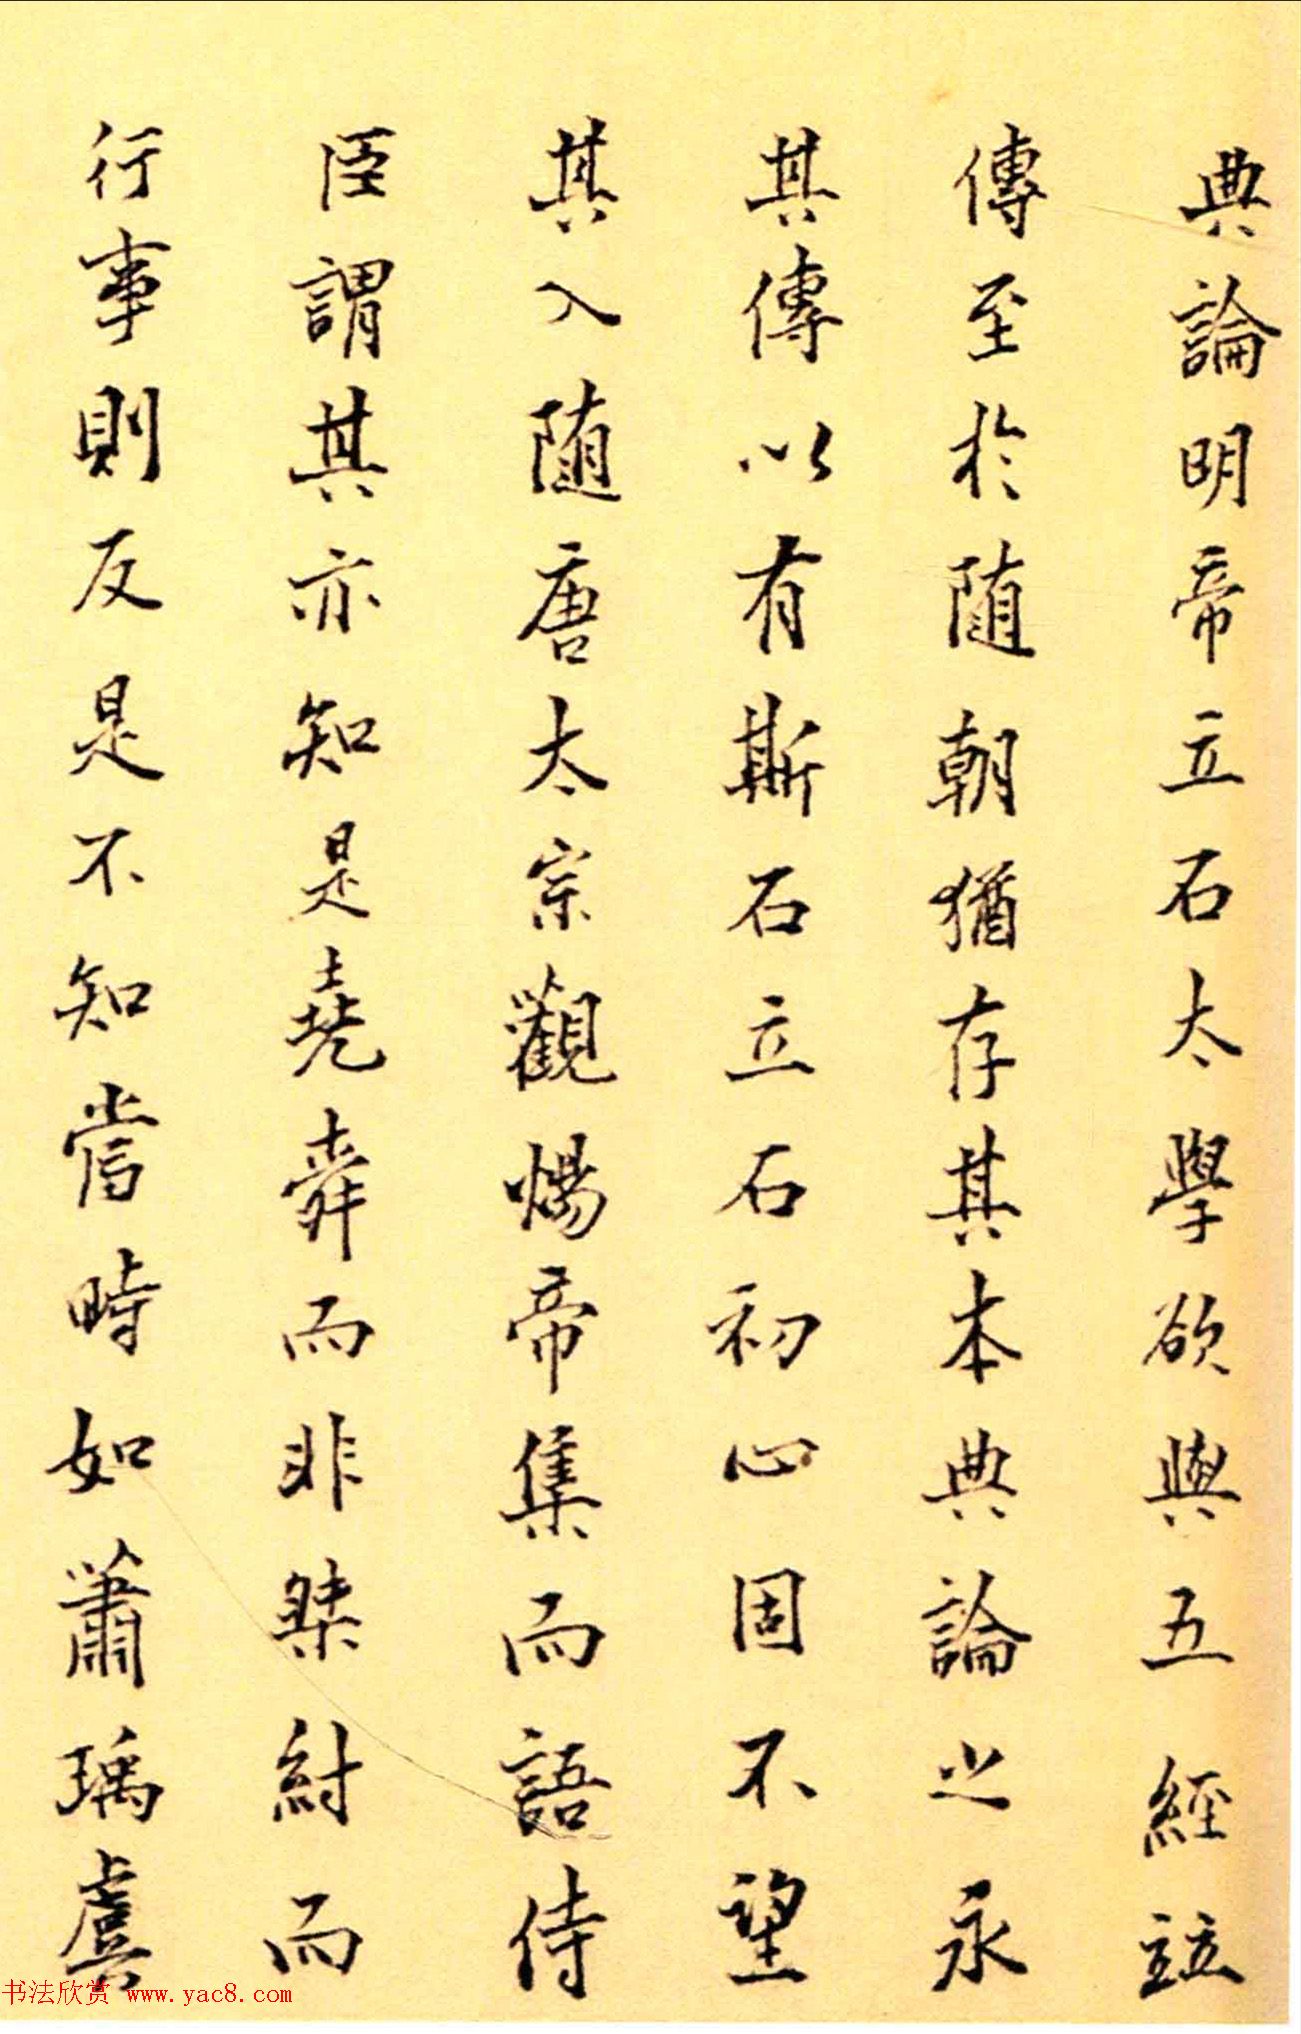 典論明帝立石太學欲與五經竝
傳至於隨朝猶存其本典論之永
其傳以有斯石立石初心固不望
其入隨唐太宗觀煬帝集而語侍
臣謂其亦知是堯舜而非桀紂而
行事則反是不知當時如蕭瑀虞
书法欣赏 www.yac8.com